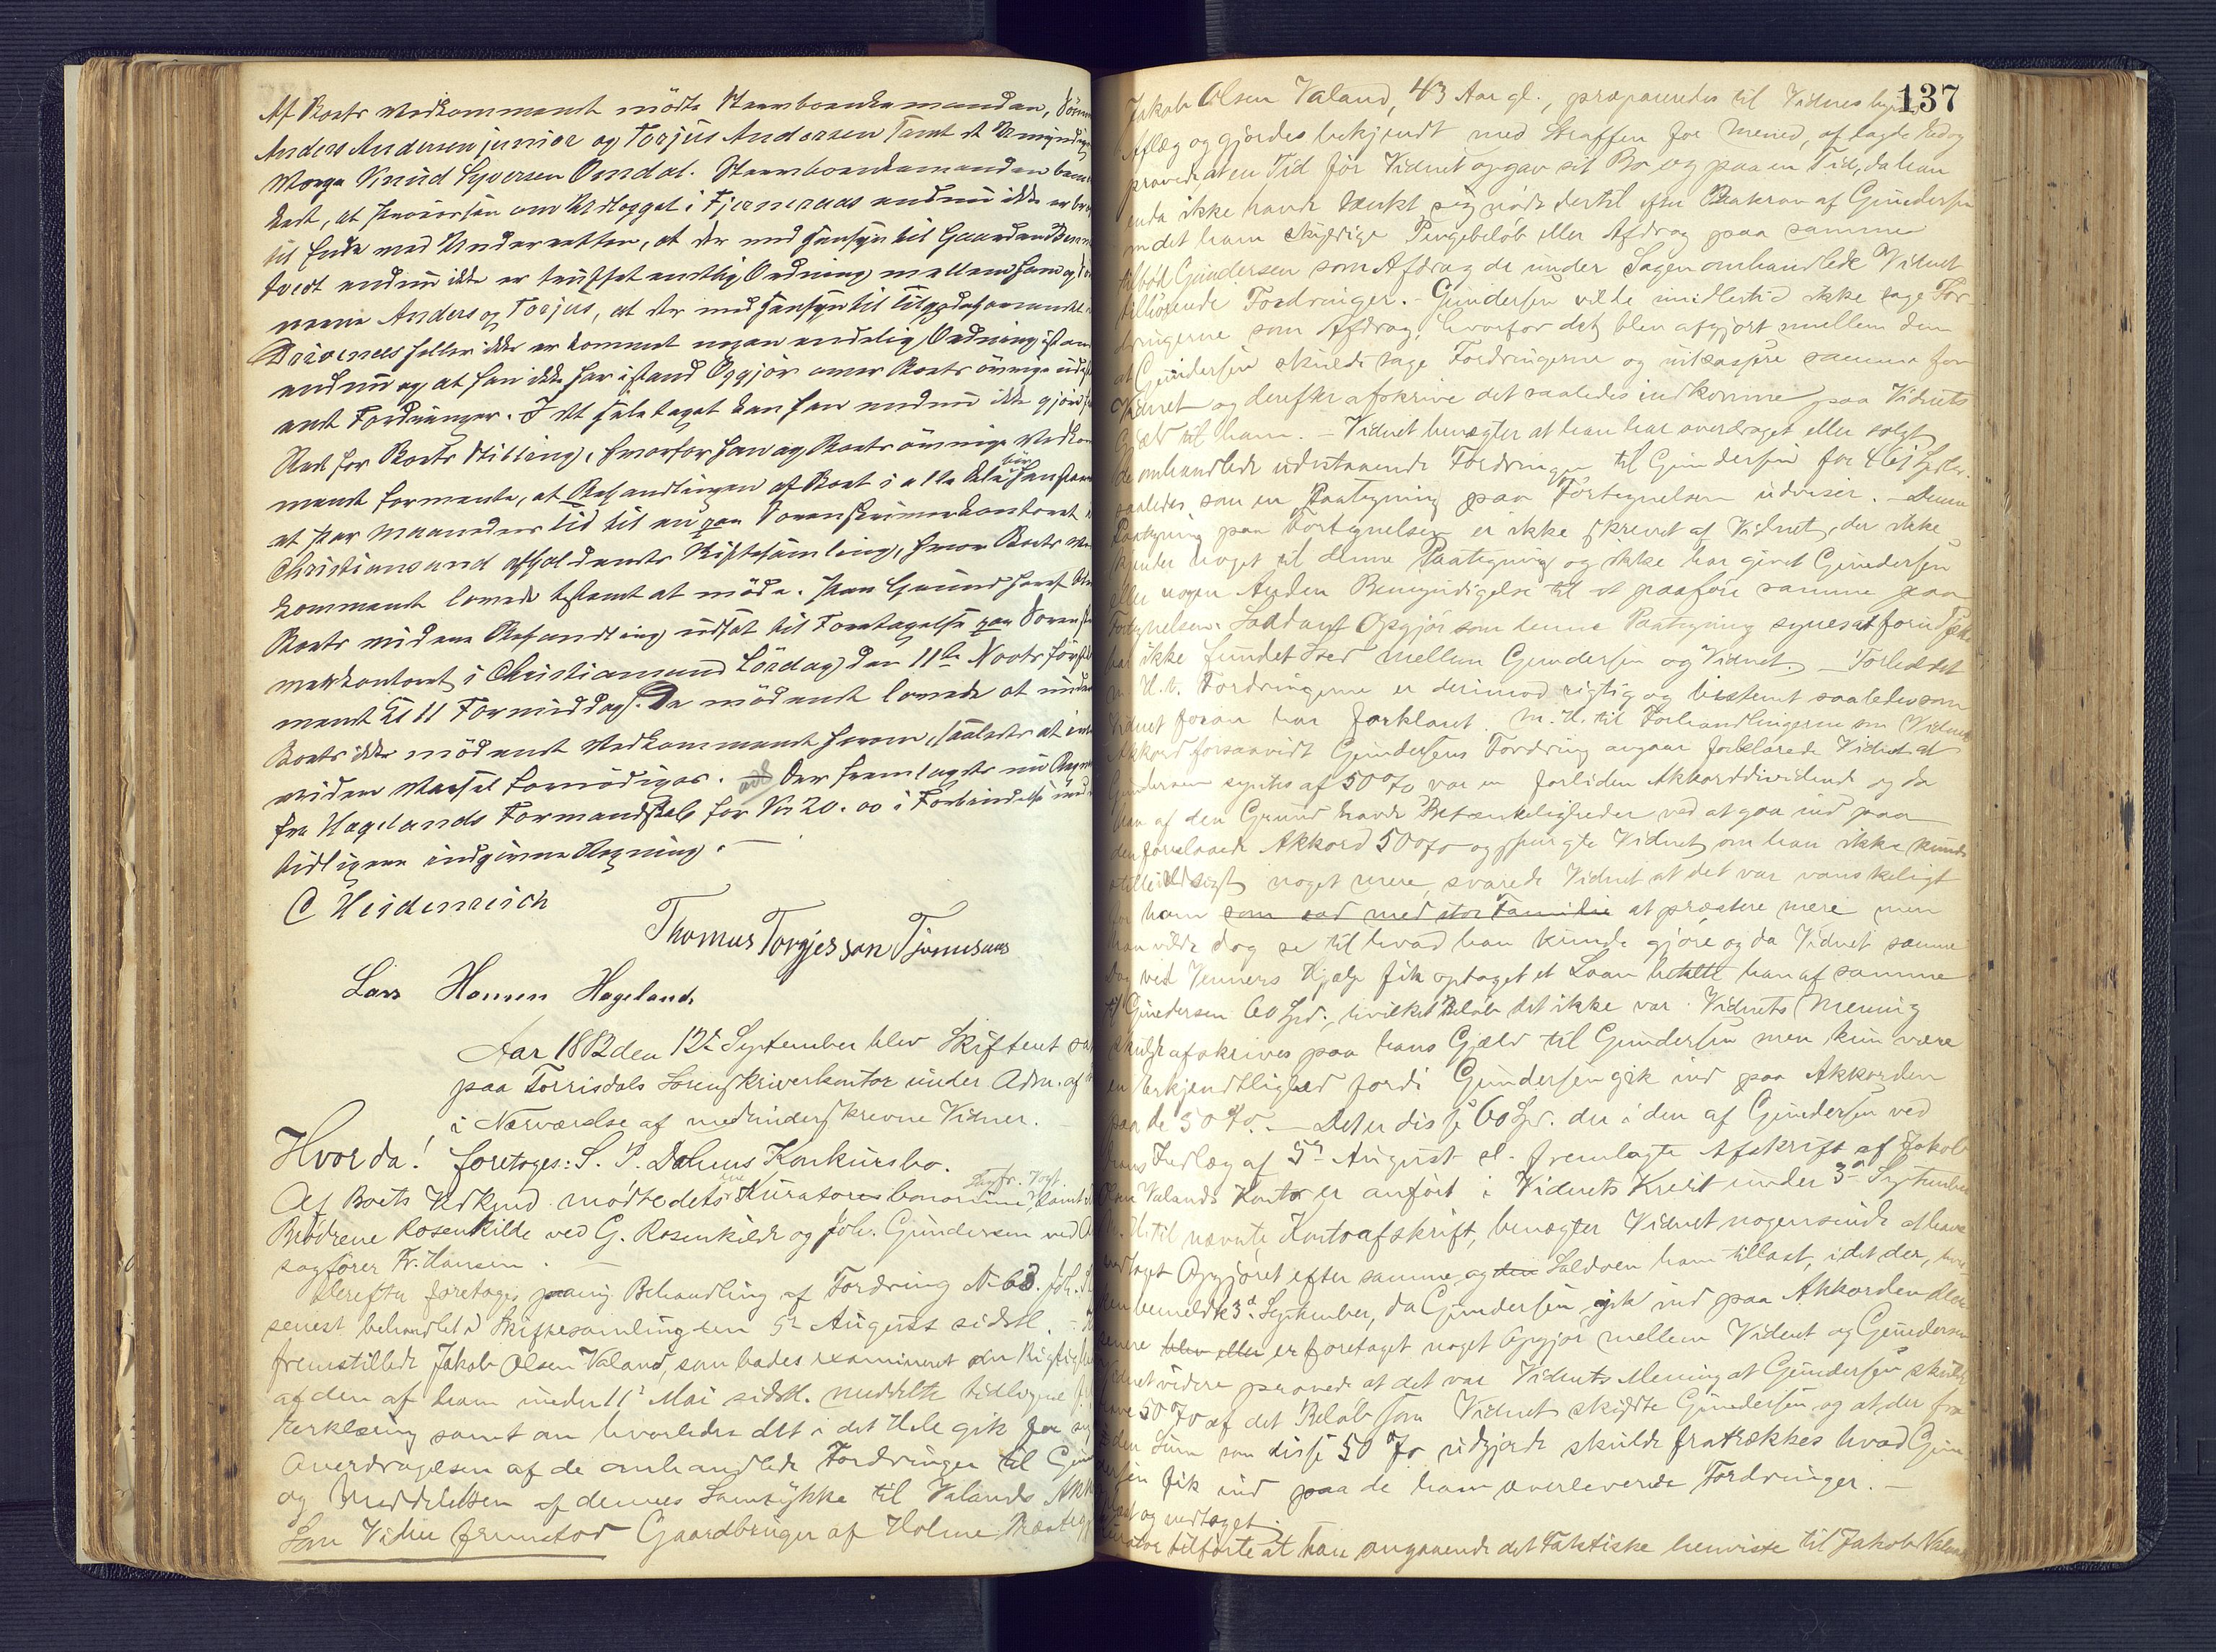 Af Boets Vedkommende mødte Stervboenkemanden, Sønn
Anders Andersen junior og Torjus Andersen samt de Umyndiges
Værge Knud Syversen Omdal. Stervboenkemanden bem
kede, at Processen om Udlægget i Fjermeraas endnu ikke er bra
til Ende ved Underretten, at der med Hensyn til Gaarden
tvedt endnu ikke er truffet endelig Ordning mellem ham og
nerne Anders og Torjus, at der med Hensyn til
heller ikke er kommet nogen endelig Ordning istand
endnu og at han ikke har istand Opgjør over Boets øvrige udest
ende Fordringer. I det hele taget kan han endnu ikke gjøre
Rede for Boets Stilling, hvorfor han og Boets øvrige Vedkom
mende formente, at Behandlingen af Boet i alle
et par Maaneders Tid til en paa Sorenskriverkontoret i
Christiansand afholdende Skiftesamling, hvor Boets Ved
kommende lovede bestemt at møde. Paa Grund heraf
Boets videre Behandling udsat til Foretagelse paa Sorenskri
verkontoret i Christiansand Lørdag den 11te Novbr først
mende Kl 11 Formiddag. De mødende lovede at under
Boets ikke mødende Vedkommende herom, saaledes at in
videre Varsel fornødiges. Der fremlagdes nu Regn
fra Hægelands Formandskab for Kr 20.00 i Forbindelse med
tidligere indgivne Regning. —
C Heidenreich
Thomas Torgjersson Tjomsaas
Lars Hansen Hageland.
Aar 1882 den 12te September blev Skifteret sat
paa Torrisdals Sorenskriverkontor under Adm. af
i Nærværelse af medunderskrevne Vidner.
Hvorda! foretoges: S. P. Dahens Konkursbo.
Af Boets Vedkmd. mødte dets Kurator bonorum samt
Brødrene Rosenkilde ved G. Rosenkilde og Joh. Gundersen ved
sagfører Fr. Hansen. —
Derefter foretoges paany Behandling af Fordring No 63. Joh.
senest behandlet i Skiftesamling den 5te August sidstl. —
fremstillede Jakob Olsen Valand, som bades examineret om Rigtig
af den af ham under 11te Mai sidstl. meddelte tidligere
Erklæring samt om hvorledes det i det Hele gik for sig
Overdragelsen af de omhandlede Fordringer til Gun
og Meddelelsen af dennes Samtykke til Valands Akk
Som Vidne fremstod Gaardbruger af Holme Præstegj
137
Jakob Olsen Valand, 43 Aar gl., præpareredes til Vidnesbyrds
Aflæg og gjordes bekjendt med Straffen for Mened, aflagde Ed og
provede, at en Tid før Vidnet opgav sit Bo og paa en Tid, da han
enda ikke havde tænkt sig nødt dertil efter Paakrav af Gundersen
om det ham skyldige Pengebeløb eller Afdrag paa samme
tilbød Gundersen som Afdrag de under Sagen omhandlede Vidnet
tilhørende Fordringer. — Gundersen vilde imidlertid ikke tage For-
dringerne som Afdrag, hvorfor det blev afgjort mellem dem
at Gundersen skulde tage Fordringerne og inkassere samme for
Vidnet og derefter afskrive det saaledes indkomne paa Vidnets
Gjæld til ham. — Vidnet benægter at han har overdraget eller solgt
de omhandlede udestaaende Fordringer til Gundersen for
saaledes som en Paategning paa Fortegnelsen udviser. — Denne
Paategning paa Fortegnelsen er ikke skrevet af Vidnet, der ikke
kender noget til denne Paategning og ikke har givet Gundersen
eller nogen Anden Bemyndigelse til at paaføre samme paa
Fortegnelsen. Saadant Opgjør som denne Paategning synes at forudsætte
har ikke fundet Sted mellem Gundersen og Vidnet. — Forholdet
m. H. t. Fordringerne er derimod rigtig og bestemt saaledes som
Vidnet foran har forklaret. M. H. til Forhandlingerne om Vidnets
Akkord forsaavidt Gundersens Fordring angaar forklarede Vidnet at
Gundersen syntes af 50 % var en forliden Akkorddividende og da
han af den Grund havde Betænkeligheder ved at gaa ind paa
den foreslaaede Akkord 50 % og spurgte Vidnet, om han ikke kunde
noget mere, svarede Vidnet at det var vanskeligt
for ham som sad med stor Familie at præstere mere men
han vilde dog se til hvad han kunde gjøre og da Vidnet samme
Dag ved Venners Hjælp fik optaget et Laan betalte han af samme
til Gundersen 60 Spd., hvilket Beløb det ikke var Vidnets Mening
skulde afskrives paa hans Gjæld til Gundersen men kun være
en Erkjendtlighed fordi Gundersen gik ind paa Akkorden
paa de 50 %. — Det er disse 60 Spd. der i den af Gundersen ved
hans Indlæg af 5te August d. fremlagte Afskrift af Jakob
Olsen Valands Konto er anført i Vidnets Kredit under 3de September
M. H. til nævnte Kontoafskrift, benægter Vidnet nogensinde at have
vedtaget Opgjøret efter samme og den Saldoen ham tillast, idet der,
bemeldte 3de September, da Gundersen gik ind paa Akkorden
senere blev eller er foretaget noget Opgjør mellem Vidnet og Gundersen
Vidnet videre provede at det var Vidnets Mening at Gundersen skulde
have 50 % af det Beløb som Vidnet skyldte Gundersen og at der fra
den Sum som disse 50 % udgjorde skulde fratrækkes hvad Gun-
dersen fik ind paa de ham overleverede Fordringer. —
Oplæst og vedtaget.
Kurator tilførte at han angaaende det Faktiske henviste til Jakob Valands